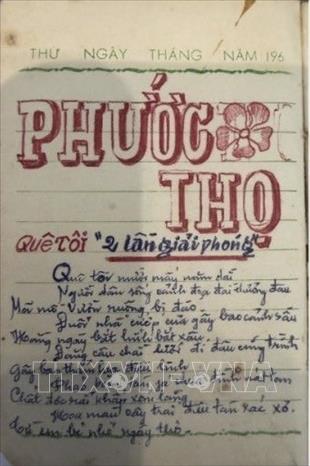 THƯ NGÀY THÁNG NĂM 196
PHƯỚC
THỌ
Quê tôi "2 lần giải phóng"
Quê tôi mười mấy năm dài
Người dân sống cảnh đọa đài thương đau
Mồ mả vườn ruộng bị đào
Đuổi nhà cướp của gây bao cảnh sầu
Hàng ngày bắt lính bắt xâu
câu chài lưới đi đâu cũng trình
Gây bao linh
Nam
Chất độc rải khắp xóm làng
Hoa màu cây trái điêu tàn xác xơ.
Trẻ em bé nhỏ ngây thơ